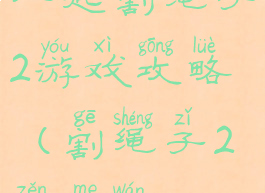 起割绳子
yóu xì gōng lüè
2游戏攻略
gē shéng zǐ
(割绳子2
zěn me wán